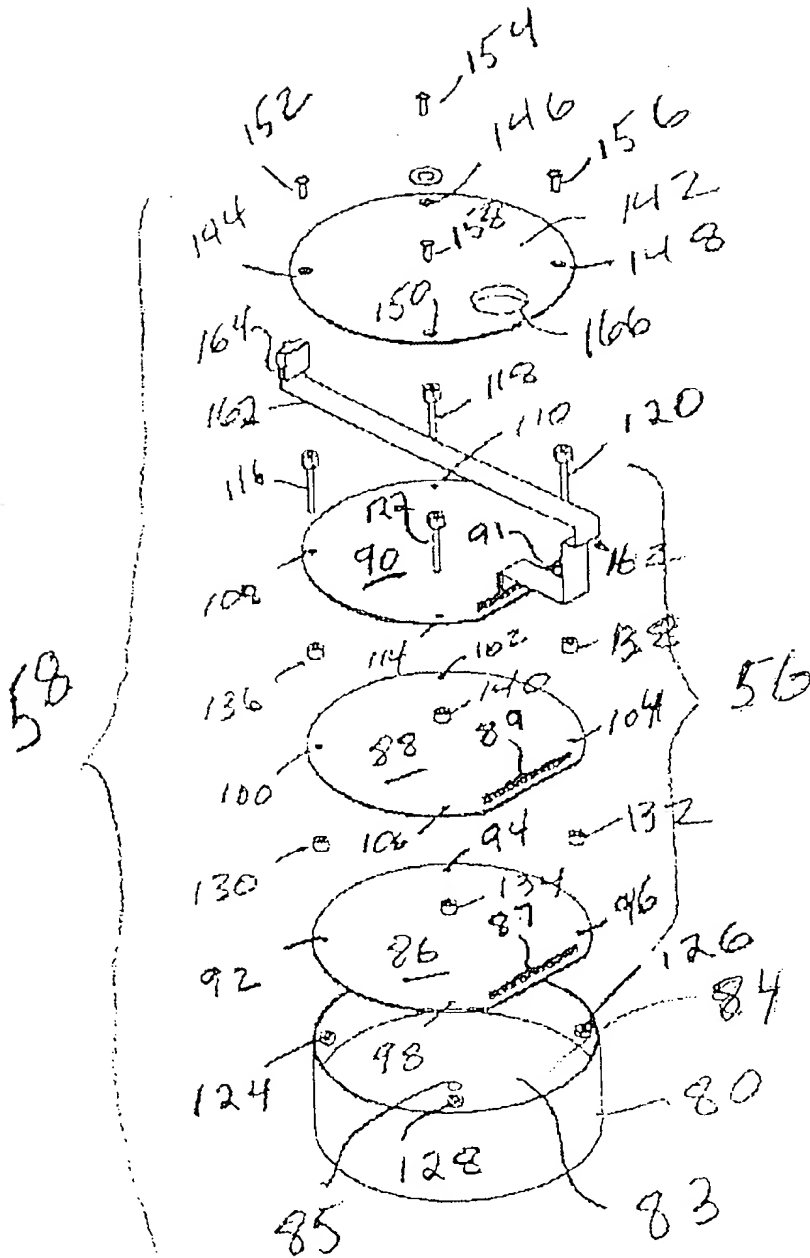 154
152
146
156
144
158
142
148
150
166
164
162
118
110
120
116
122
91
90
108
163
114
102
138
136
140
56
58
104
88
89
100
106
132
94
130
134
87
96
86
92
126
84
98
124
80
128
85
83